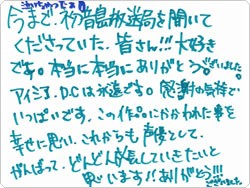 泣いちゃってます
今まで初音島放送局を聞いて
くださっていた、皆さん!!!大好き
です。本当に本当にありがとうございました
アイシア、D.Cは永遠です。感謝の気持で
いっぱいです。この作品にかかわれた事を
幸せに思い、これからも声優として、
がんばって、どんどん成長していきたいと
思います!!ありがとう!!!
ございました。